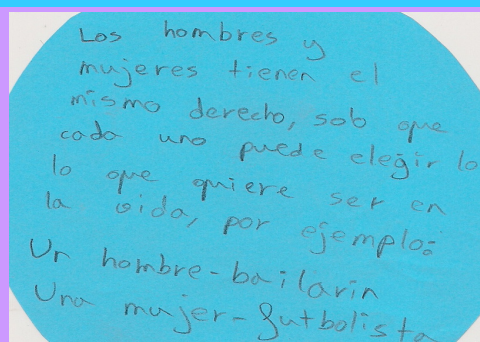 Los hombres y
mujeres tienen el
mismo derecho, sob que
cada uno puede elegir lo
lo que quiere ser en
la vida, por ejemplo:
Un hombre-bailarin
Una mujer-futbolista